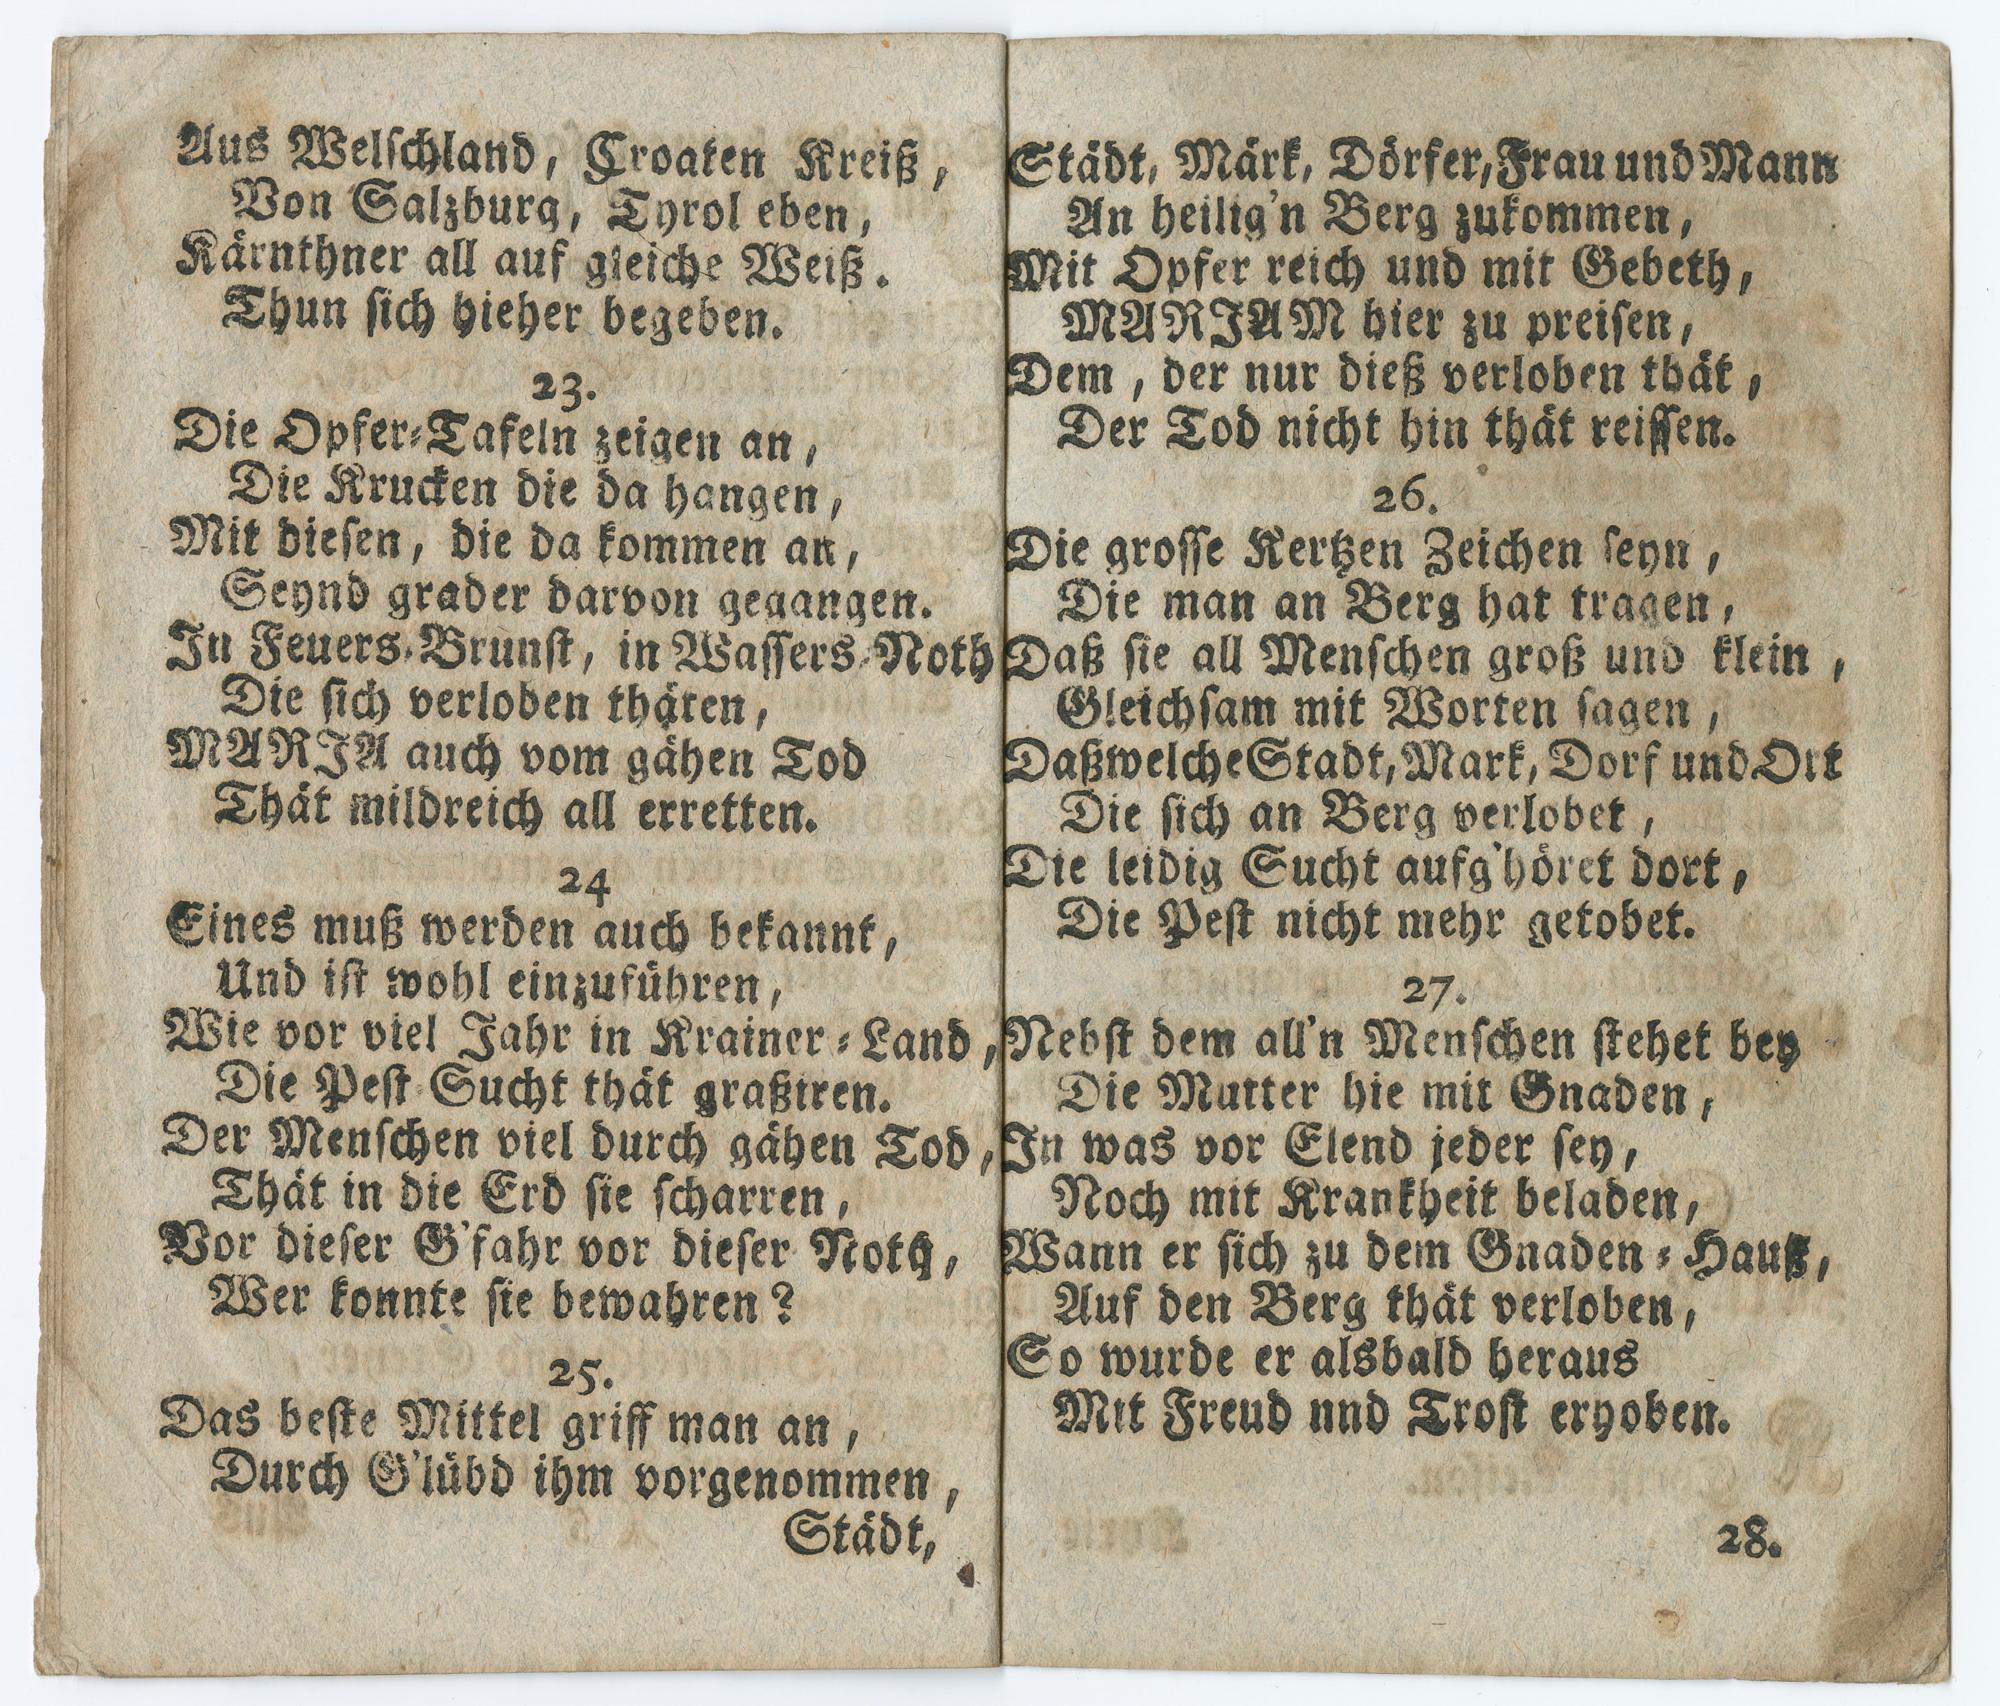 Aus Welſchland, Croaten Kreiß,
Von Salzburg, Tyrol eben,
Kärnthner all auf gleiche Weiß.
Thun ſich hieher begeben.
23.
Die Opfer⸗Tafeln zeigen an,
Die Krucken die da hangen,
Mit dieſen, die da kommen an,
Seynd grader darvon gegangen.
In Feuers⸗Brunſt, in Waſſers⸗Noth
Die ſich verloben thäten,
MARJA auch vom gähen Tod
Thät mildreich all erretten.
24
Eines muß werden auch bekannt,
Und iſt wohl einzuführen,
Wie vor viel Jahr in Krainer⸗Land,
Die Peſt⸗Sucht thät graßiren.
Der Menſchen viel durch gähen Tod,
Thät in die Erd ſie ſcharren,
Vor dieſer G'fahr vor dieſer Noth,
Wer konnte ſie bewahren?
25.
Das beſte Mittel griff man an,
Durch G'lübd ihm vorgenommen,
Städt,
Städt, Märk, Dörfer, Frau und Mann
An heilig'n Berg zukommen,
Mit Opfer reich und mit Gebeth,
MARJAM hier zu preiſen,
Dem, der nur dieß verloben thät,
Der Tod nicht hin thät reiſſen.
26.
Die groſſe Kertzen Zeichen ſeyn,
Die man an Berg hat tragen,
Daß ſie all Menſchen groß und klein,
Gleichſam mit Worten ſagen,
Daß welche Stadt, Mark, Dorf und Ort
Die ſich an Berg verlobet,
Die leidig Sucht aufg'höret dort,
Die Peſt nicht mehr getobet.
27.
Nebſt dem all'n Menſchen ſtehet bey
Die Mutter hie mit Gnaden,
In was vor Elend jeder ſey,
Noch mit Krankheit beladen,
Wann er ſich zu dem Gnaden⸗Hauß,
Auf den Berg thät verloben,
So wurde er alsbald heraus
Mit Freud nnd Troſt erhoben.
28.